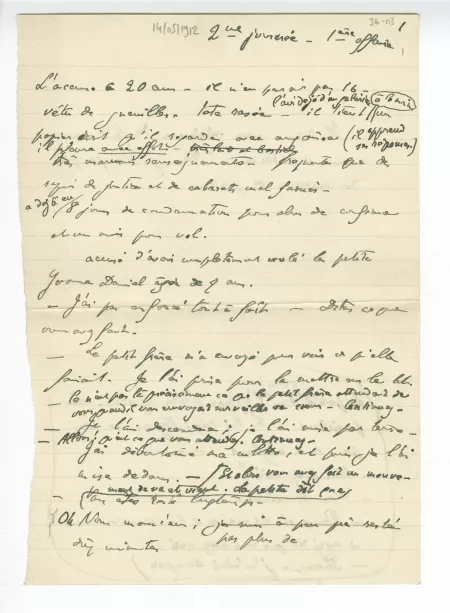 14/05/1912
36-03
1
1
2me journée - 1ère affaire
L'accusé a 20 ans - il n'en paraît pas 16 -
vêtu de guenilles. tête rasée - il tient un
papier écrit qu'il regarde avec angoisse (il apprend
ses réponses)
il pleure
très mauvais renseignements - fréquente que des
repris de justice et de cabarets mal famés -
a déjà eu 8 jours de condamnation pour abus de confiance
et un mois pour vol.
accusé d'avoir complètement violé la petite
Yvonne Daniel âgée de 7 ans.
- J'ai pas enfoncé tout à fait - Dites ce que
vous avez fait.
- Le petit frère m'a envoyé pour voir ce qu'elle
faisait. Je l'ai prise pour la mettre sur le lit.
- ce n'est pas là précisément ce que le petit frère attendait de
vous quand il vous envoyait surveiller sa soeur - Continuez -
- Je l'ai descendue; je l'ai mise par terre -
- Allons, qu'est-ce que vous attendez. Continuez -
J'ai déboutonné ma culotte; et puis je l'ai
mise dedans. - Et alors vous avez fait un mouve-
ment de va et vient - la petite dit que
- Oh! Non monsieur; je suis à peu près resté
dix minutes pas plus de